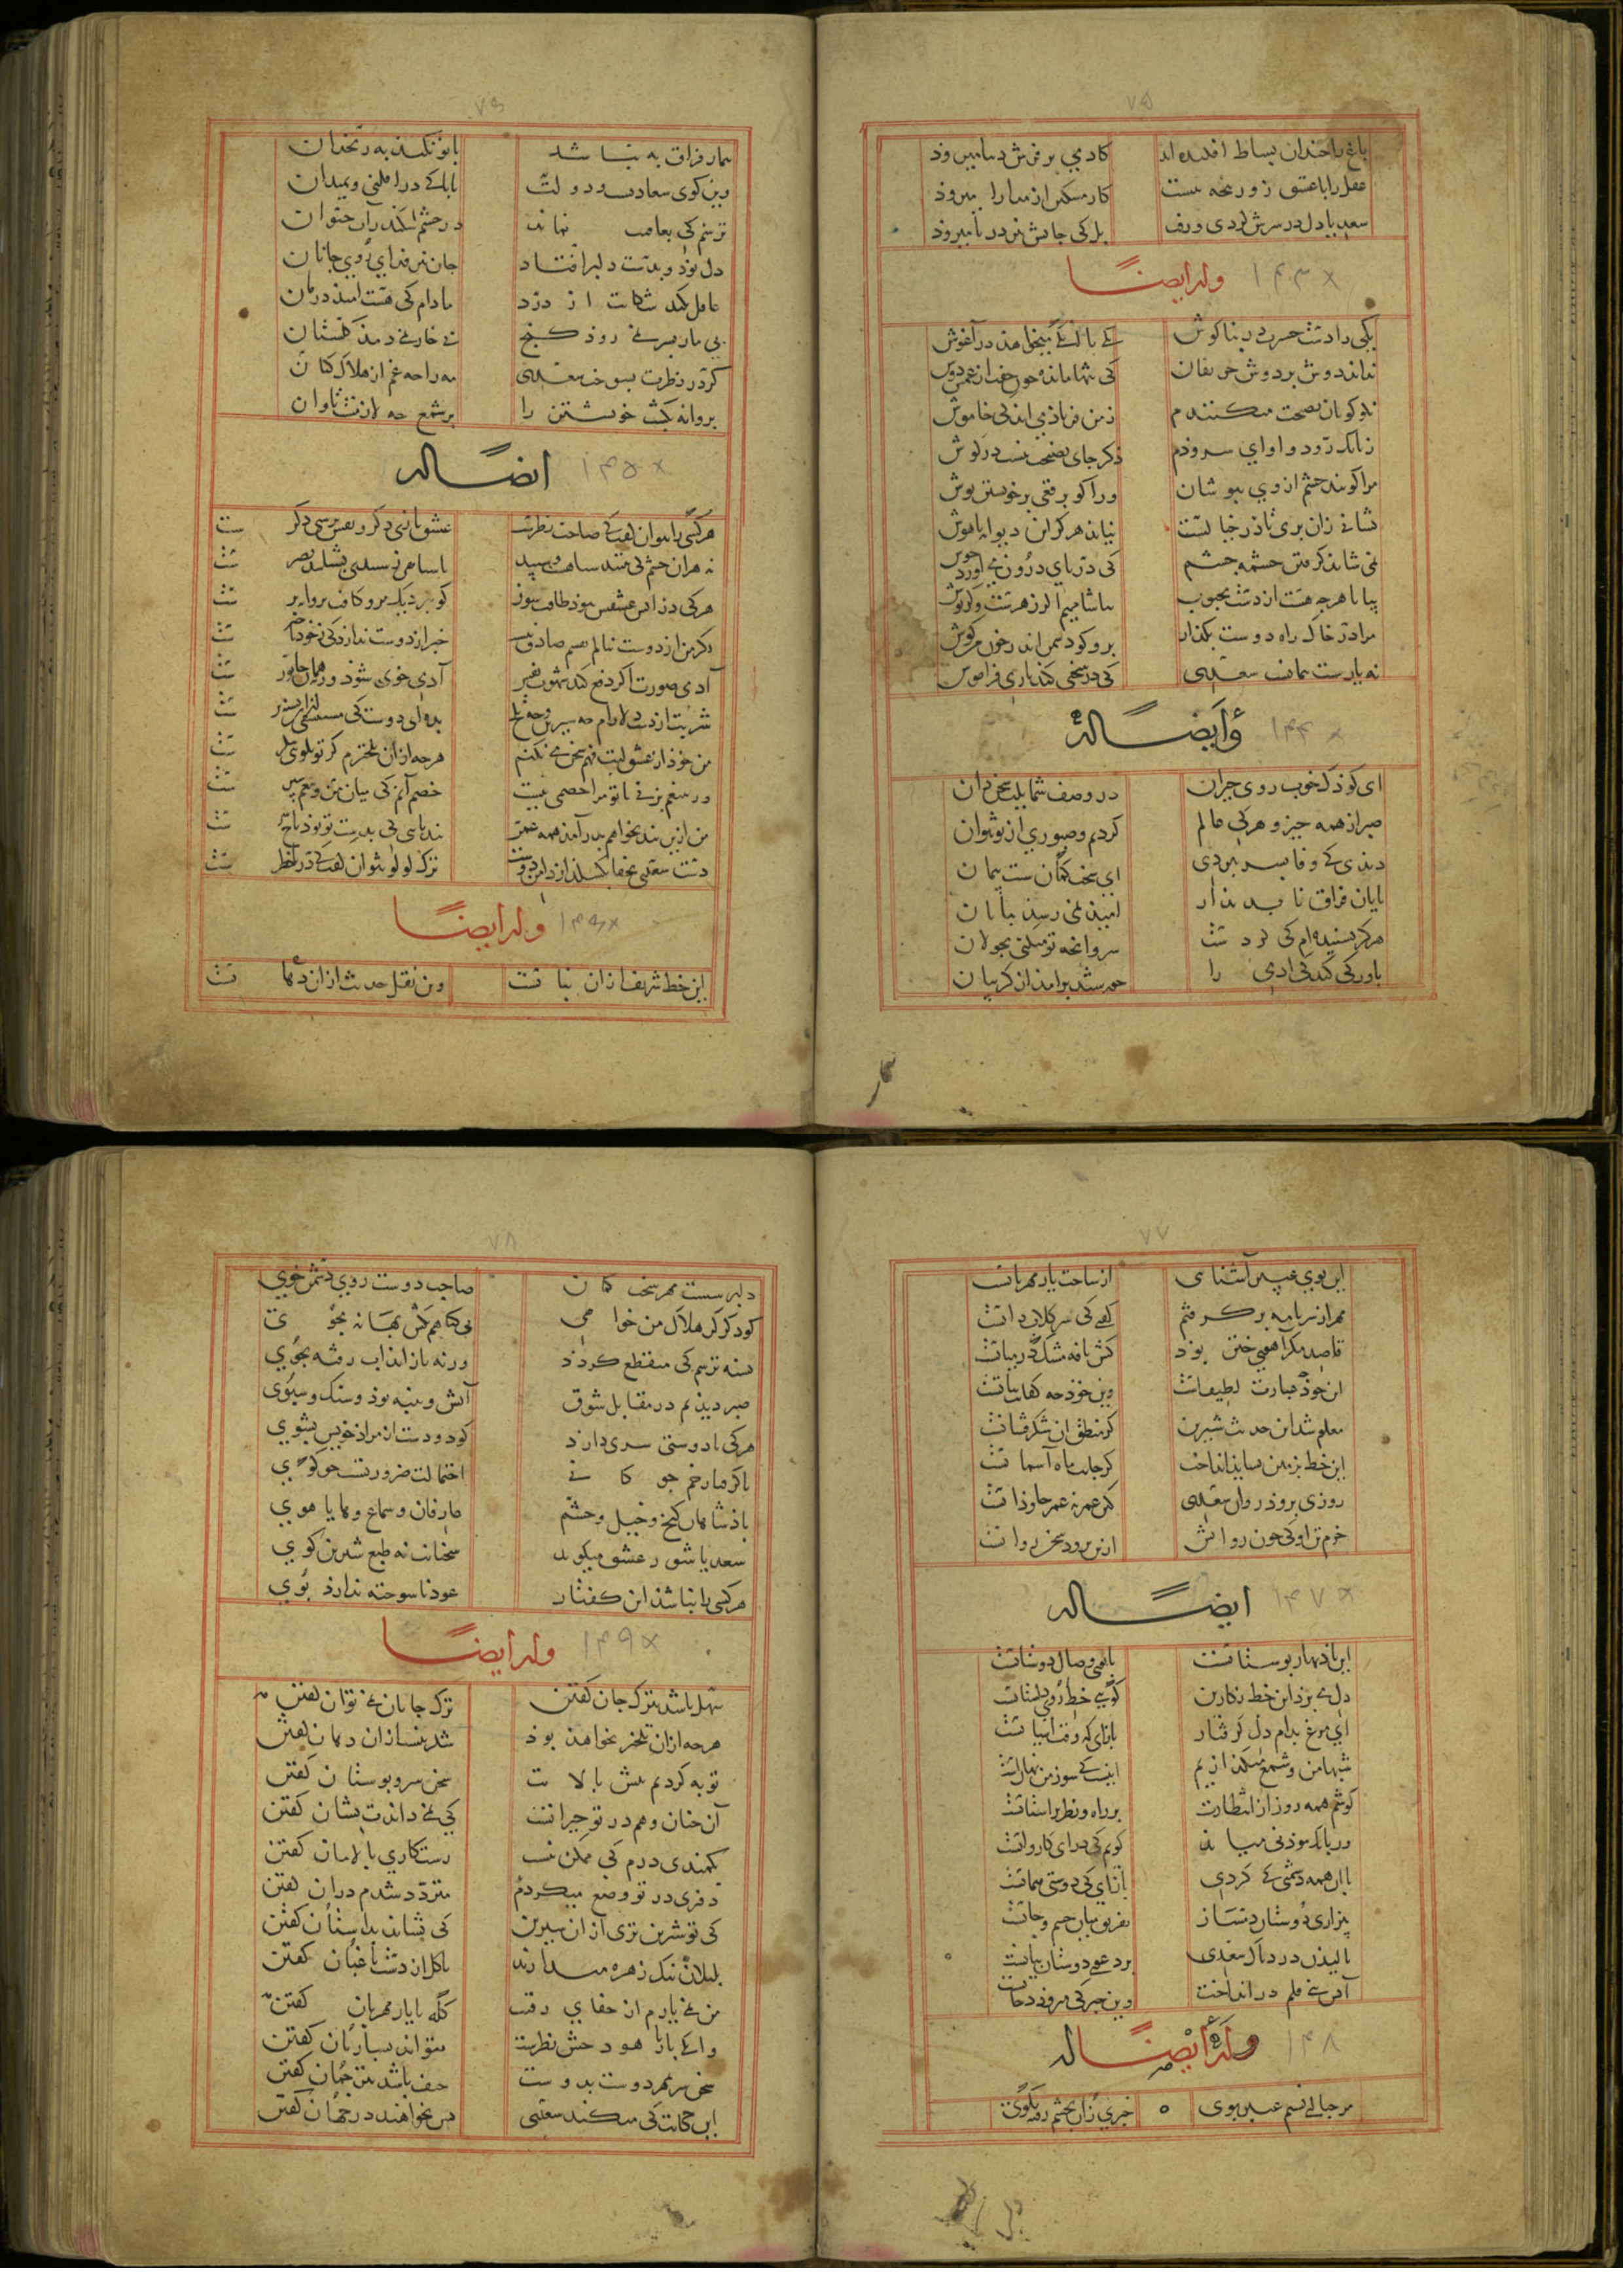 ۷۵
باغ را چندان بساط افکنده اند کادمی بر فرش دیبا میرود
عقل را با عشق زور پنجه نیست کار مسکین از مدارا میرود
سعدیا دل در سرش کردی و رفت بل کی جانش نیز در پا میرود
وله ایضاً ۱۴۳
یکی را دست حسرت بر بناکوش یکی با آنک میخواهد در آغوش
نداند دوش بر دوش حریفان کی تنها مانده چون خفت از غمش دوش
نکو کویان نصیحت میکنندم ز من فریاد می اید کی خاموش
ز بانک رود و اوای سرودم دکر جای نصیحت نیست در کوش
مرا کویند چشم از وی بپوشان ورا کو برقعی بر خویشتن پوش
نشانی زان پری تا در خیالست نیاید هرکز این دیوانه باهوش
نمی شاید کرفتن چشمه چشم کی دریای درون می آورد جوش
بیا تا هرچه هست از دست محبوب بیاشامیم اکر زهرست وکر نوش
مرا در خاک راه دوست بکذار برو کو دشمن اندر خون من کوش
نه یاری سست پیمانست سعدی کی در سختی کند یاری فراموش
وایضاً له ۱۴۴
ای کوذک خوب روی حیران در وصف شمایلت سخن دان
صبر از همه چیز و هرکی عالم کردیم و صبوری از تو نتوان
دیدی کی وفا بسر نبردی ای سخت کمان سست پیمان
پایان فراق نا پدیدار امید نمی رسد بپایان
هرکز نشنیده ام کی کردست سرو آنچه تو میکنی بجولان
باور کی کند کی ادمی را خورشید برآمد از کریبان
۷۶
بیمار فراق به نباشد تا بو نکند به زنخدان
وین کوی سعادت و دولت تا با کی در افکنی بمیدان
ترسم کی بعاقبت نماند در چشم سکندر آب حیوان
دل بود و بدست دلبر افتاد جان نیز فدای روی جانان
عاقل نکند شکایت از درد مادام کی هست امید درمان
بی مار بسر نمی رود کنج نی خار نمی دمد کلستان
کر در نظرت بسوخت سعدی مه را چه غم از هلاک کتان
پروانه بکشت خویشتن را بر شمع چه لازمست تاوان
ایضاً له ۱۴۵
هر کسی را نتوان کفت کی صاحب نظرست عشق بازی دکر و نفس پرستی دکرست
نه هر ان چشم کی بینند سیاهست و سپید یا سیاهی ز سپیدی بشناسد بصرست
هرکی در اتش عشقش نبود طاقت سوز کو بنزدیک مرو کافت پروانه پرست
کر من از دوست بنالم نفسم صادق نیست خبر از دوست ندارد کی ز خود باخبرست
آدمی صورت اکر دفع کند شهوت نفس آدمی خوی شود ورنه همان جانورست
شربت از دست دلارام چه شیرین و چه تلخ بده ای دوست کی مستسقی از ان تشنه ترست
من خود از عشق لبت فهم سخن می نکنم هرچه ازان تلخترم کر تو بکویی شکرست
ور بتیغم بزنی با تو مرا خصمی نیست خصم آنم کی میان من و تیغت سپرست
من ازین بند نخواهم بدر آمد همه عمر بند پایی کی بدست تو بود تاج سرست
دست سعدی بجفا نکسلد از دامن دوست ترک لولو نتوان کفت کی دریا خطرست
وله ایضاً ۱۴۶
این خط شریف ازان بنانست وین نقل حدیث ازان دهانست
۷۷
این بوی عبیر آشنایی از ساحت یار مهربانست
مهر از سر نامه بر کرفتم کفتی کی سر کلابدانست
قاصد مکر آهوی ختن بود کش نافه مشک در میانست
این خود چه عبارت لطیفست وین خود چه کفایت بیانست
معلوم شد این حدیث شیرین کز منطق ان شکرفشانست
این خط بزمین نشاید انداخت کز جانب ماه آسمانست
روزی برود روان سعدی کین عمر نه عمر جاودانست
خرم تن او کی چون روانش از تن برود سخن روانست
ایضاً له ۱۴۷
این باد بهار بوستانست یا بوی وصال دوستانست
دل می برد این خط نکارین کویی خط روی دلستانست
ای مرغ بدام دل کرفتار بازای که وقت اشیانست
شبها من و شمع میکدازیم اینست کی سوز من نهانست
کوشم همه روز از انتظارت بر راه و نظر بر استانست
ور بانک موذنی میاید کویم کی درای کاروانست
با این همه دشمنی کی کردی بازای کی دوستی همانست
بیزاری دوستان دمساز تفریق میان جسم و جانست
نالیدن دردناک سعدی بر دعوی دوستان بیانست
آتش بنی قلم در انداخت وین حبر کی می رود دخانست
وله ایضاً له ۱۴۸
مرحبا ای نسیم عنبر بوی خبری زان بخشم رفته بکوی
۷۸
دلبر سست مهر سخت کمان صاحب دوست روی دشمن خوی
کو دکر کر هلاک من خواهی بی کناهم بکش بهانه مجوی
تشنه ترسم کی منقطع کردد ورنه باز آید آب رفته بجوی
صبر دیدیم در مقابل شوق آتش و پنبه بود و سنک و سبوی
هرکی با دوستی سری دارد کو دو دست از مراد خویش بشوی
تا کرفتار خم چوکانی احتمالت ضرورتست چو کوی
پادشاهان و کنج و خیل و حشم عارفان و سماع و هایا هوی
سعدیا شور عشق میکوید سخنانت نه طبع شیرین کوی
هر کسی را نباشد این کفتار عود ناسوخته ندارد بوی
وله ایضاً ۱۴۹
سهل باشد بترک جان کفتن ترک جانان نمی توان کفتن
هرچه ازان تلختر بخواهد بود شیرینست ازان دهان کفتن
توبه کردیم پیش بالات سخن سرو بوستان کفتن
آن چنان وهم در تو حیرانست کی نمی داندت نشان کفتن
بکمندی درم کی ممکن نیست رستکاری بالامان کفتن
دفتری در تو وضع میکردم متردد شدم دران کفتن
کی تو شیرین تری ازان شیرین کی بشاید بداستان کفتن
بلبلان نیک زهره میدارند با کل از دست باغبان کفتن
من نمی یارم از جفای رقیب کله با یار مهربان کفتن
وانکی با یار هودجش نظرست نتواند بساربان کفتن
سخن سر بمهر دوست بدوست حیف باشد بترجمان کفتن
این حکایت کی میکند سعدی بس بخواهند در جهان کفتن